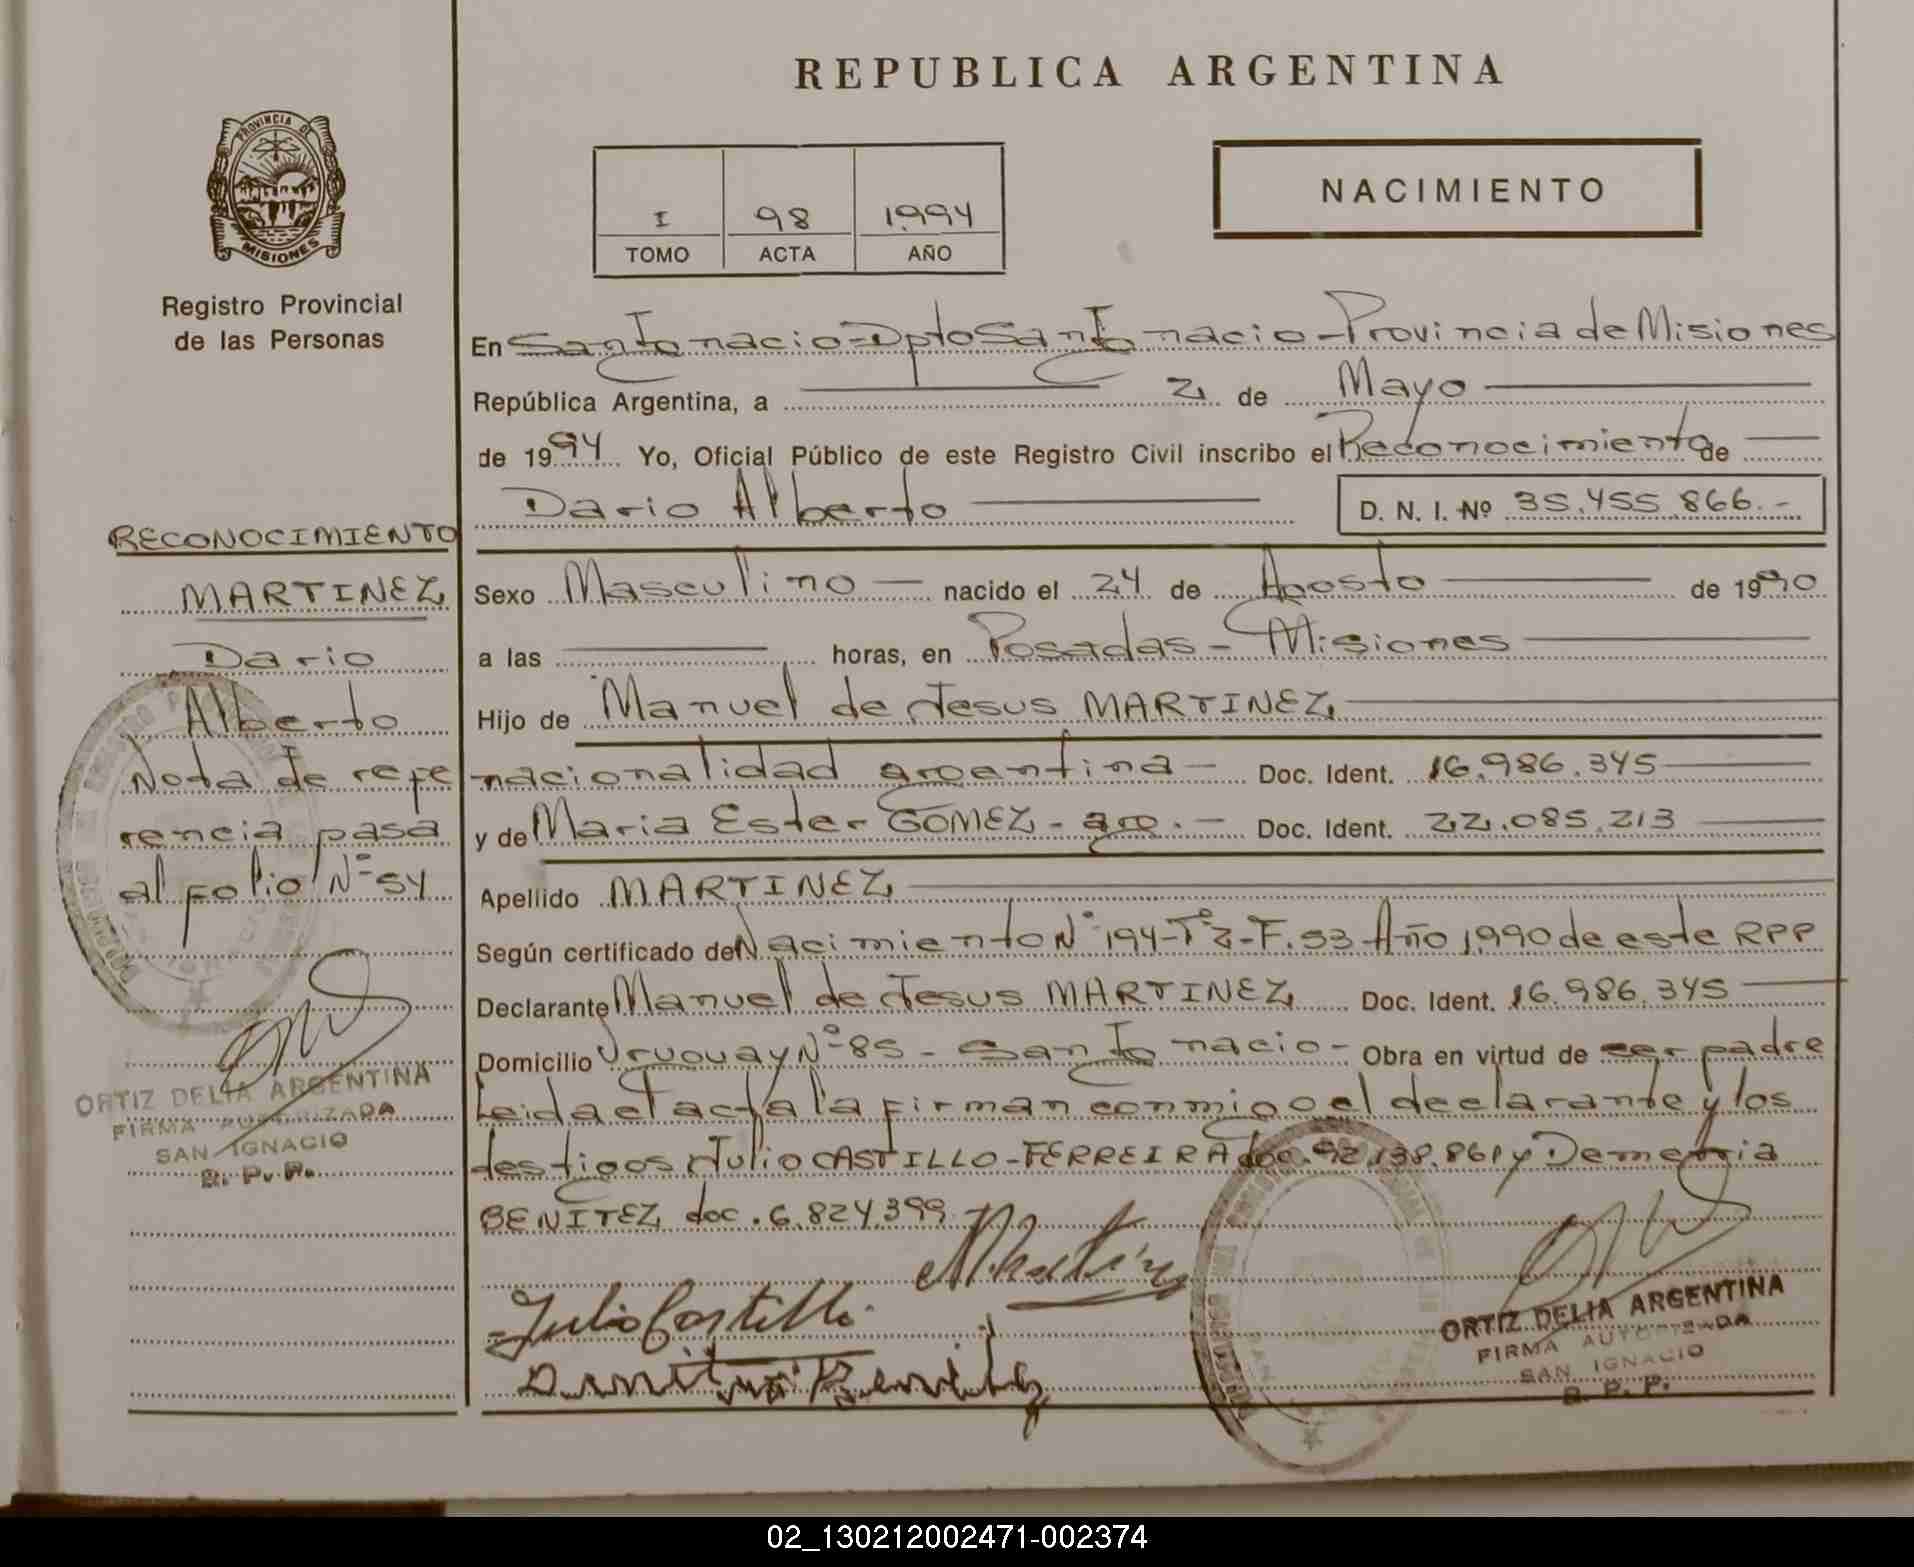 REPUBLICA ARGENTINA
PROVINCIA DE
MISIONES
Registro Provincial
de las Personas
I 98 1.994
TOMO ACTA AÑO
NACIMIENTO
En San Ignacio - Dpto San Ignacio - Provincia de Misiones
República Argentina, a 2 de Mayo
de 1994 Yo, Oficial Público de este Registro Civil inscribo el Reconocimiento de
Dario Alberto D. N. I. Nº 35.455.866.-
Sexo Masculino nacido el 24 de Agosto de 1990
a las horas, en Posadas - Misiones
Hijo de Manuel de Jesus MARTINEZ
nacionalidad argentina Doc. Ident. 16.986.345
y de Maria Ester GOMEZ - arg. - Doc. Ident. 22.085.213
Apellido MARTINEZ
Según certificado de Nacimiento Nº 194-Tº2-F.53 Año 1.990 de este RPP
Declarante Manuel de Jesus MARTINEZ Doc. Ident. 16.986.345
Domicilio Uruguay Nº 85 - San Ignacio - Obra en virtud de ser padre
Leida el acta la firman conmigo el declarante y los
testigos Julio CASTILLO-FERREIRA doc. 92.138.861 y Demetria
BENITEZ doc. 6.824.399
RECONOCIMIENTO
MARTINEZ
Dario
Alberto
Nota de refe
rencia pasa
al folio Nº 54
ORTIZ DELIA ARGENTINA
FIRMA AUTORIZADA
SAN IGNACIO
R. P. P.
Julio Castillo
ORTIZ DELIA ARGENTINA
FIRMA AUTORIZADA
SAN IGNACIO
R. P. P.
02_130212002471-002374